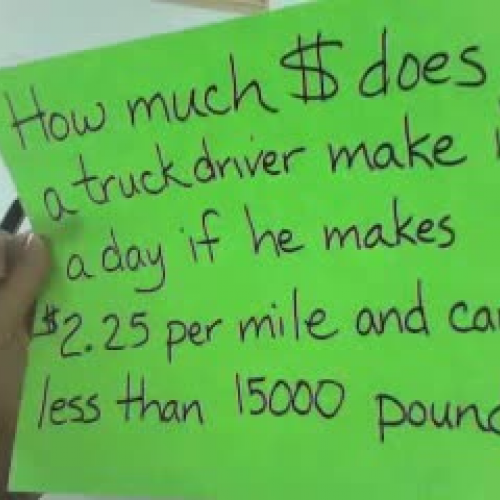 How much $ does
a truck driver make
a day if he makes
$2.25 per mile and
less than 15000